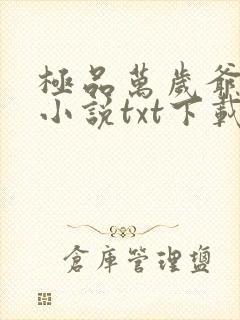 極品萬歲爺
小說txt下載
倉庫管理鹽